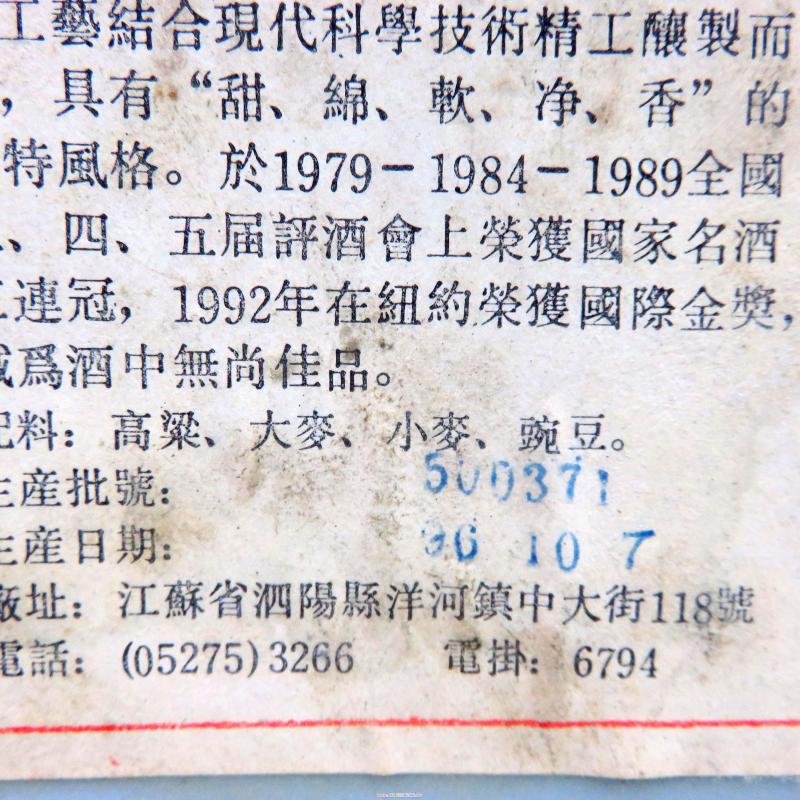 工藝結合現代科學技術精工釀製而
，具有“甜、綿、軟、净、香”的
特風格。於1979－1984－1989全國
、四、五届評酒會上榮獲國家名酒
連冠，1992年在紐約榮獲國際金獎，
爲酒中無尚佳品。
配料：高粱、大麥、小麥、豌豆。
生産批號：500371
生産日期：96 10 7
廠址：江蘇省泗陽縣洋河鎮中大街118號
電話：(05275)3266 電掛：6794